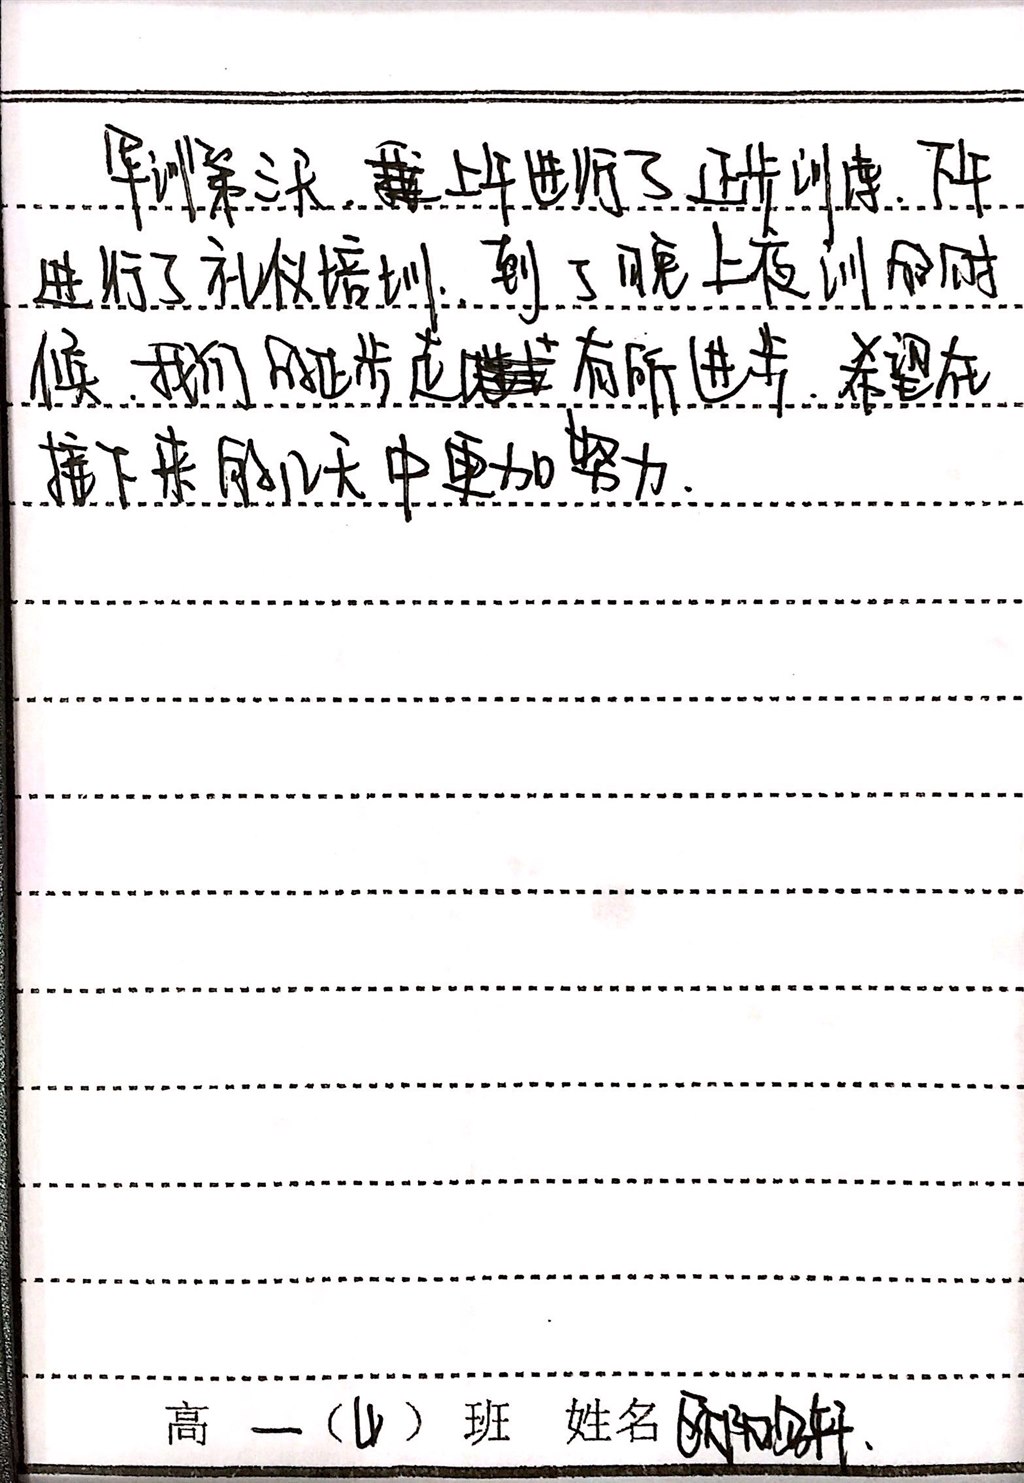 军训第三天.上午进行了正步训练.下午
进行了礼仪培训.到了晚上夜训的时
候.我们的正步走有所进步.希望在
接下来的几天中更加努力.
高一(4)班 姓名